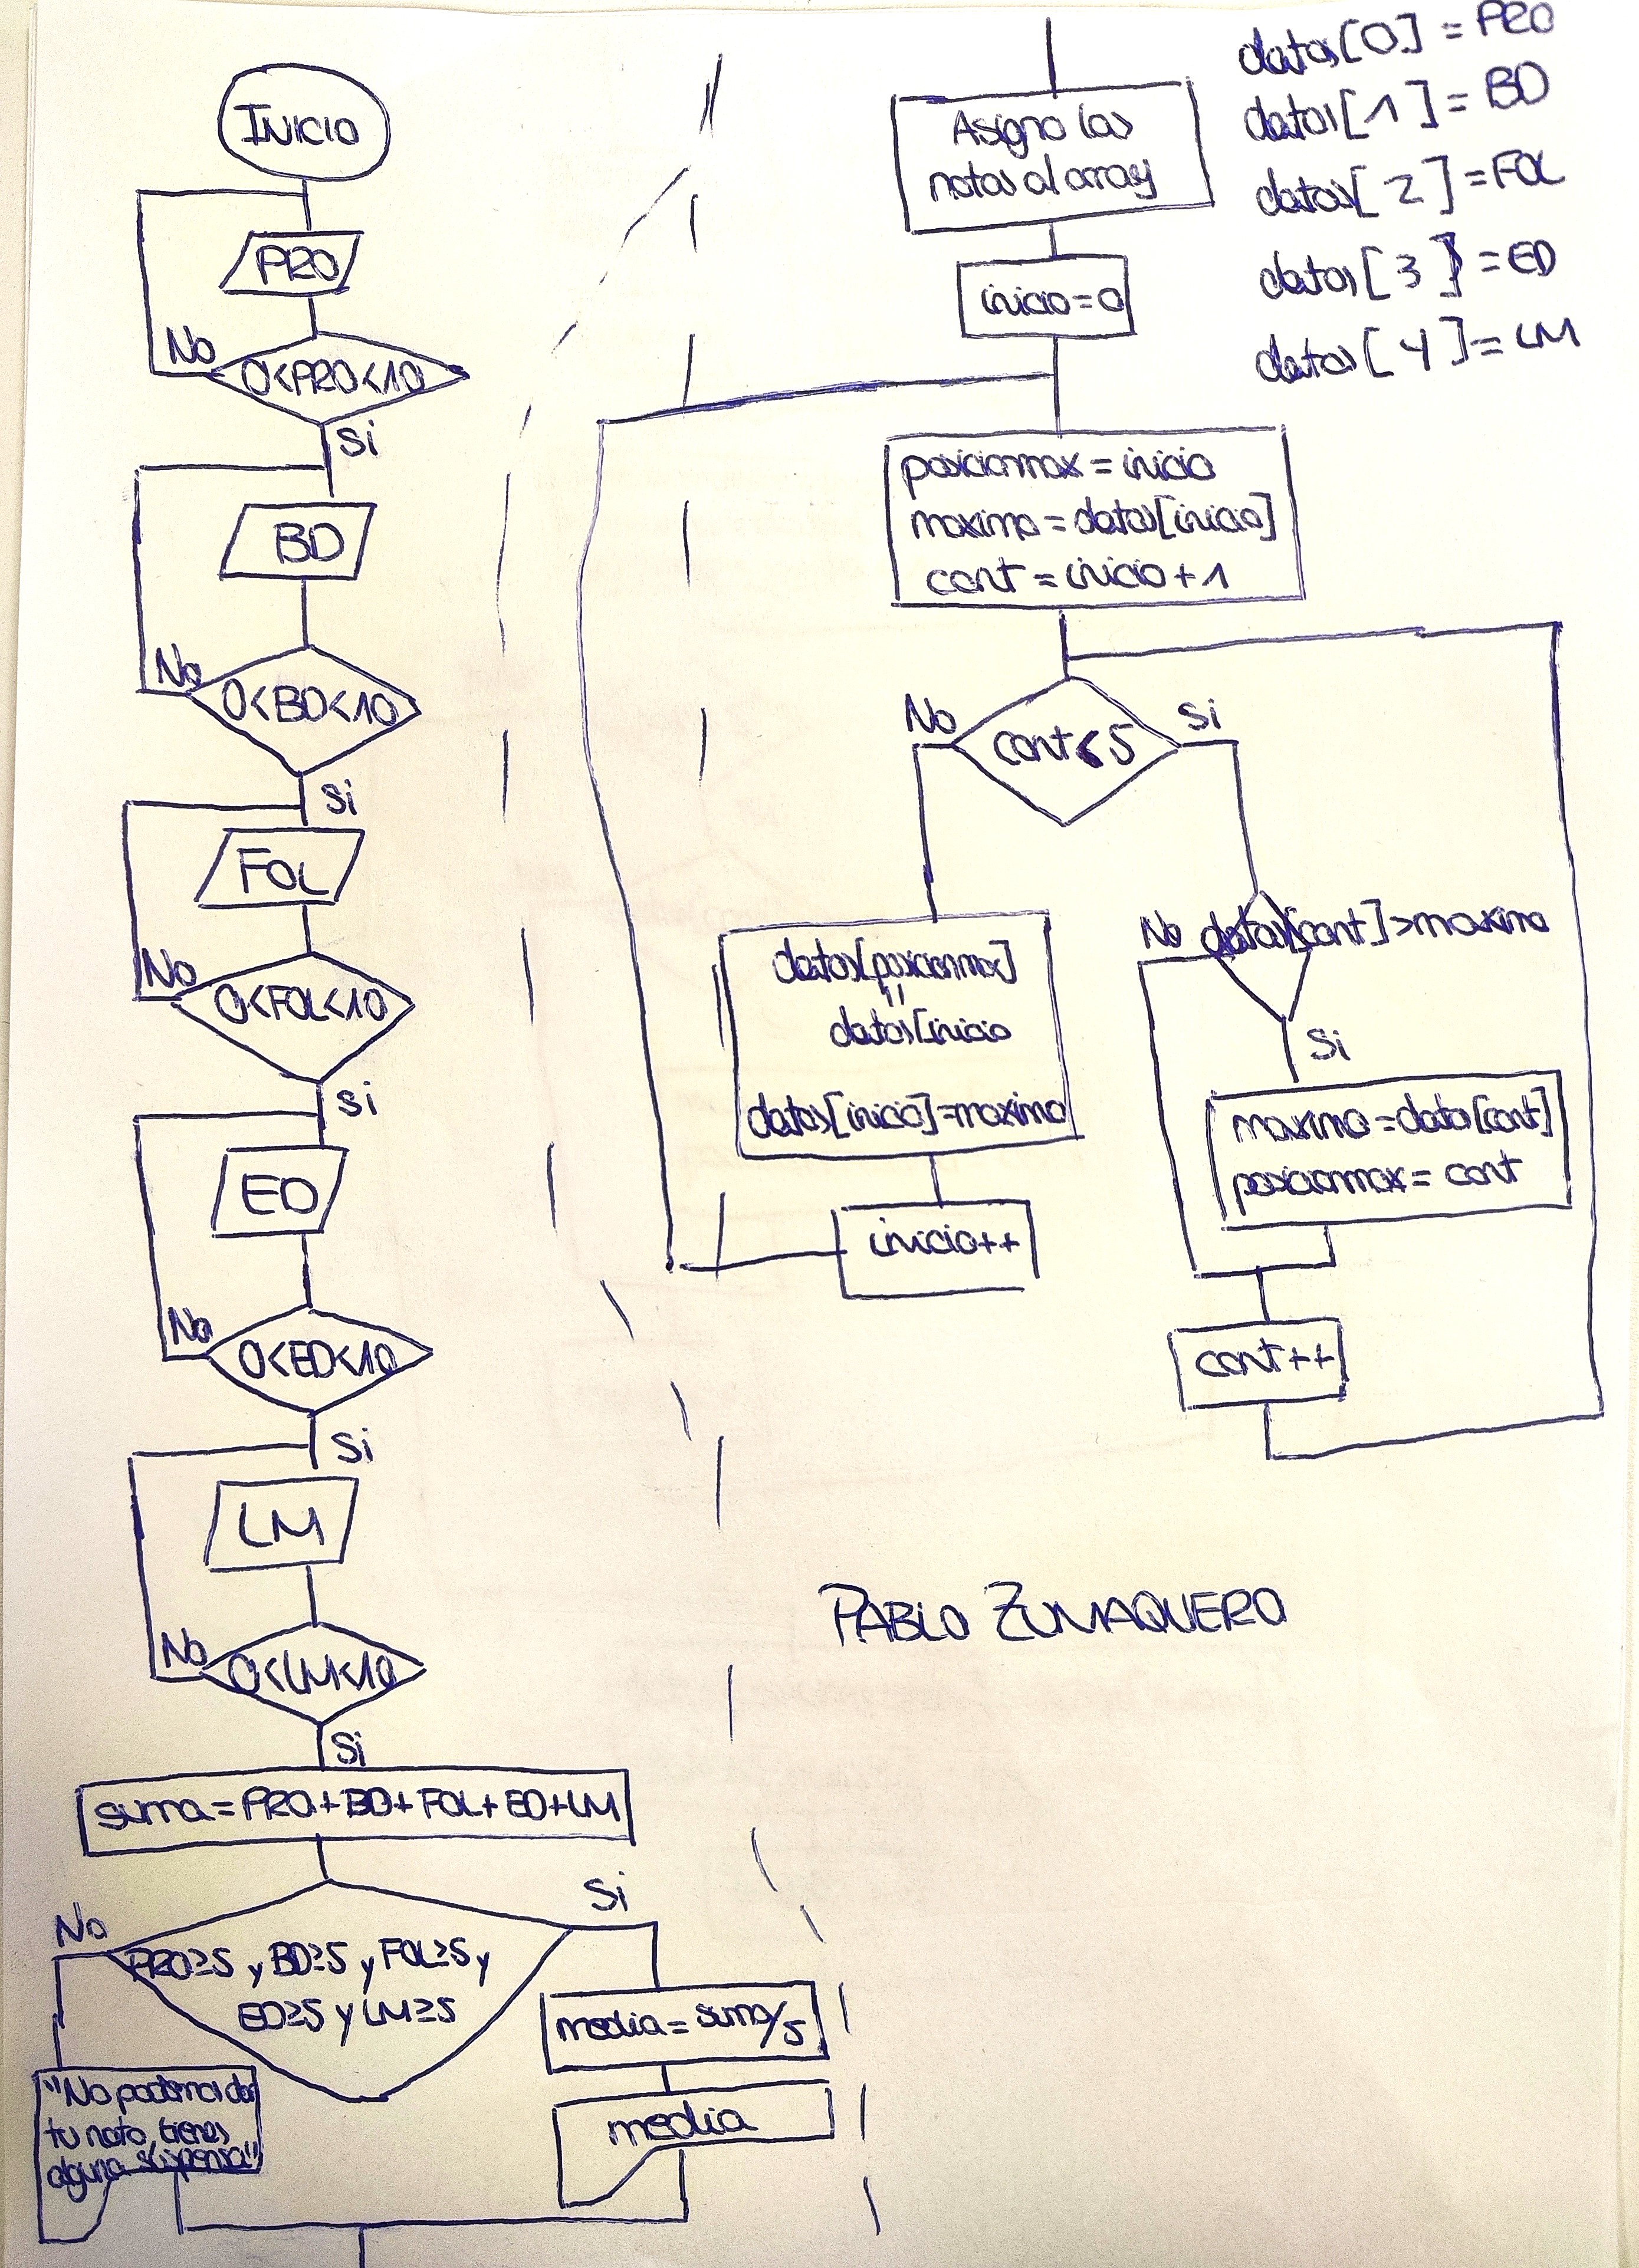 INICIO
PRO
No
0<PRO<10
Si
BD
No
0<BD<10
Si
FOL
No
0<FOL<10
Si
ED
No
0<ED<10
Si
LM
No
0<LM<10
Si
suma=PRO+BD+FOL+ED+LM
No
Si
PRO≥5 y BD≥5 y FOL≥5 y
ED≥5 y LM≥5
"No podemos dar
tu nota, tienes
alguna suspensa"
media=suma/5
media
Asigno las
notas al array
datos[0]=PRO
datos[1]=BD
datos[2]=FOL
datos[3]=ED
datos[4]=LM
inicio=0
posicionmax=inicio
maximo=datos[inicio]
cont=inicio+1
No
cont<5
Si
datos[posicionmax]
=
datos[inicio
datos[inicio]=maximo
inicio++
No
datos[cont]>maximo
Si
maximo=datos[cont]
posicionmax=cont
cont++
PABLO ZUMAQUERO